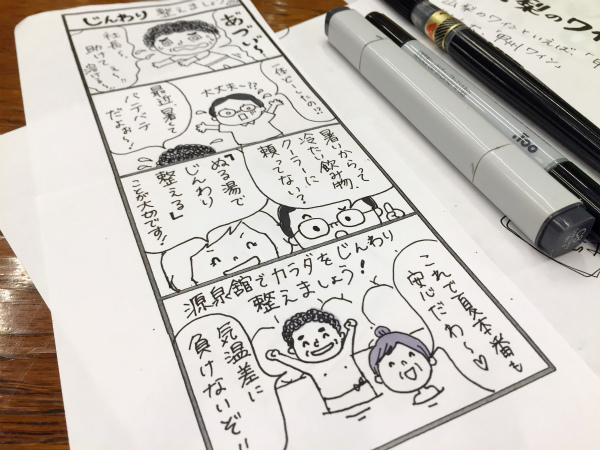 じんわり 整えましょ
あづい〜
社長〜
助けて
一体どうしたの!?
大丈夫〜??
最近、暑くて
バテバテ
暑いからって
冷たい飲み物、
クーラーに
頼ってない?
「ぬる湯で
じんわり
整える」
ことが大切です!
源泉館でカラダをじんわり
整えましょう!
これで夏本番も
安心だわ〜♡
気温差に
負けないぞ!!
梨のワイ
梨のワインといえば、
「甲州ワイン」